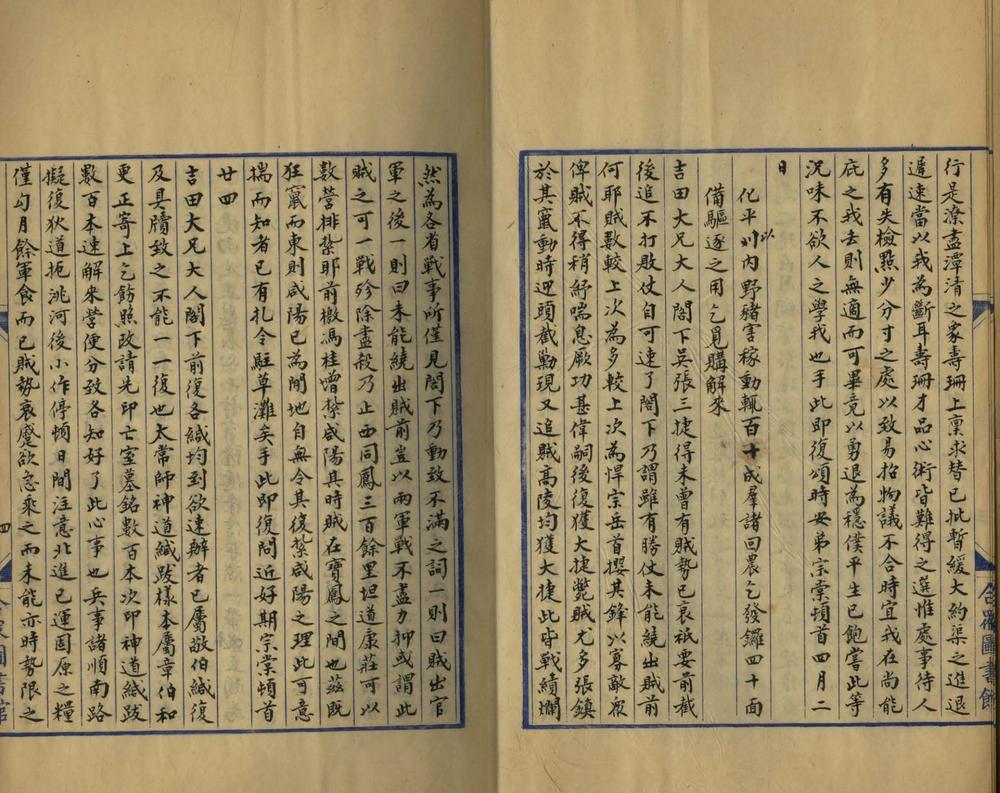 行是潦盡潭清之象壽珊上稟求替已批暫緩大約渠之進退
遲速當以我為斷耳壽珊才品心術皆難得之選惟處事待人
多有失檢點少分寸之處以致易招物議不合時宜我在尚能
庇之我去則無適而可畢竟以勇退為穩僕平生已飽嘗此等
況味不欲人之學我也手此即復頌時安弟宗棠頓首四月二
日
化平川以內野豬害稼動輒百十成羣諸回農乞發鑼四十面
備驅逐之用乞覓購解來
吉田大兄大人閣下吳張三捷得未曾有賊勢已衰衹要前截
後追不打敗仗自可速了閣下乃謂雖有勝仗未能繞出賊前
何耶賊數較上次為多較上次為悍宗岳首攖其鋒以寡敵眾
俾賊不得稍紓喘息厥功甚偉嗣後復獲大捷斃賊尤多張鎮
於其竄動時迎頭截勦現又追賊高陵均獲大捷此皆戰績爛
然為各省戰事所僅見閣下乃動致不滿之詞一則曰賊出官
軍之後一則曰未能繞出賊前豈以兩軍戰不盡力抑或謂此
賊之可一戰殄除盡殺乃止西同鳳三百餘里坦道康莊可以
數營排紮耶前撤馮桂增紮咸陽其時賊在寶鳳之間也茲既
狂竄而東則咸陽已為閒地自無令其復紮咸陽之理此可意
揣而知者已有札令駐草灘矣手此即復問近好期宗棠頓首
廿四
吉田大兄大人閣下前復各緘均到欲速辦者已屬敬伯緘復
及具牘致之不能一一復也太常師神道緘跋樣本屬章伯和
更正寄上乞飭照改請先印亡室墓銘數百本次印神道緘跋
數百本速解來營便分致各知好了此心事也兵事諸順南路
擬復狄道扼洮河後小作停頓日間注意北進已運固原之糧
僅勾月餘軍食而已賊勢衰蹙欲急乘之而未能亦時勢限之
四
合眾圖書館